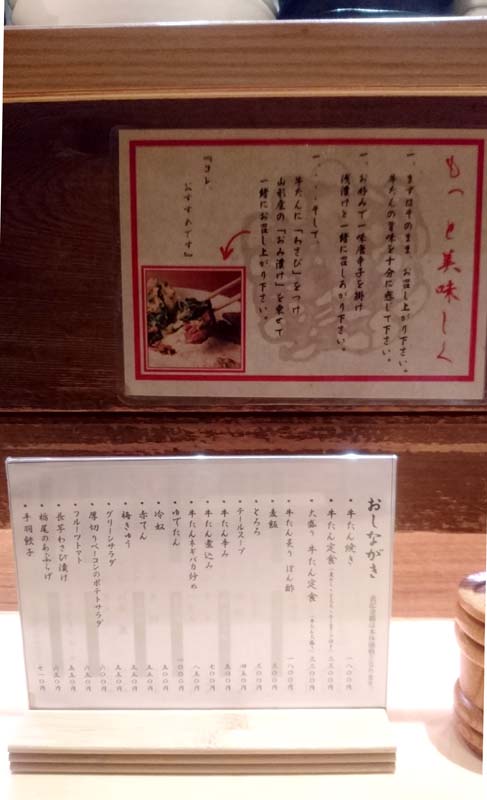 もっと美味しく
一、まずはそのまま、お召し上がり下さい。
牛たんの旨味を十分に感じて下さい。
一、お好みで一味唐辛子を掛け
浅漬けと一緒に召しあがり下さい。
一、・・・そして、
牛たんに「わさび」をつけ
山形産の「おみ漬け」を乗せて
一緒にお召し上がり下さい。
『コレ、
おすすめです』
おしながき
・牛たん焼き 一八〇〇円
・牛たん定食
・大盛り 牛たん定食
・牛たん炙り ぽん酢 一八〇〇円
・麦飯 三〇〇円
・とろろ 三〇〇円
・テールスープ 四五〇円
・牛たん辛み 五〇〇円
・牛たん煮込み 七〇〇円
・牛たんネギバカ炒め 八五〇円
・ゆでたん 一〇〇〇円
・冷奴 五〇〇円
・赤てん 五五〇円
・梅きゅう 五五〇円
・グリーンサラダ 六〇〇円
・厚切りベーコンのポテトサラダ
・フルーツトマト 五五〇円
・長芋わさび漬け 六五〇円
・栃尾のあぶらげ 六五〇円
・手羽餃子 七一〇円